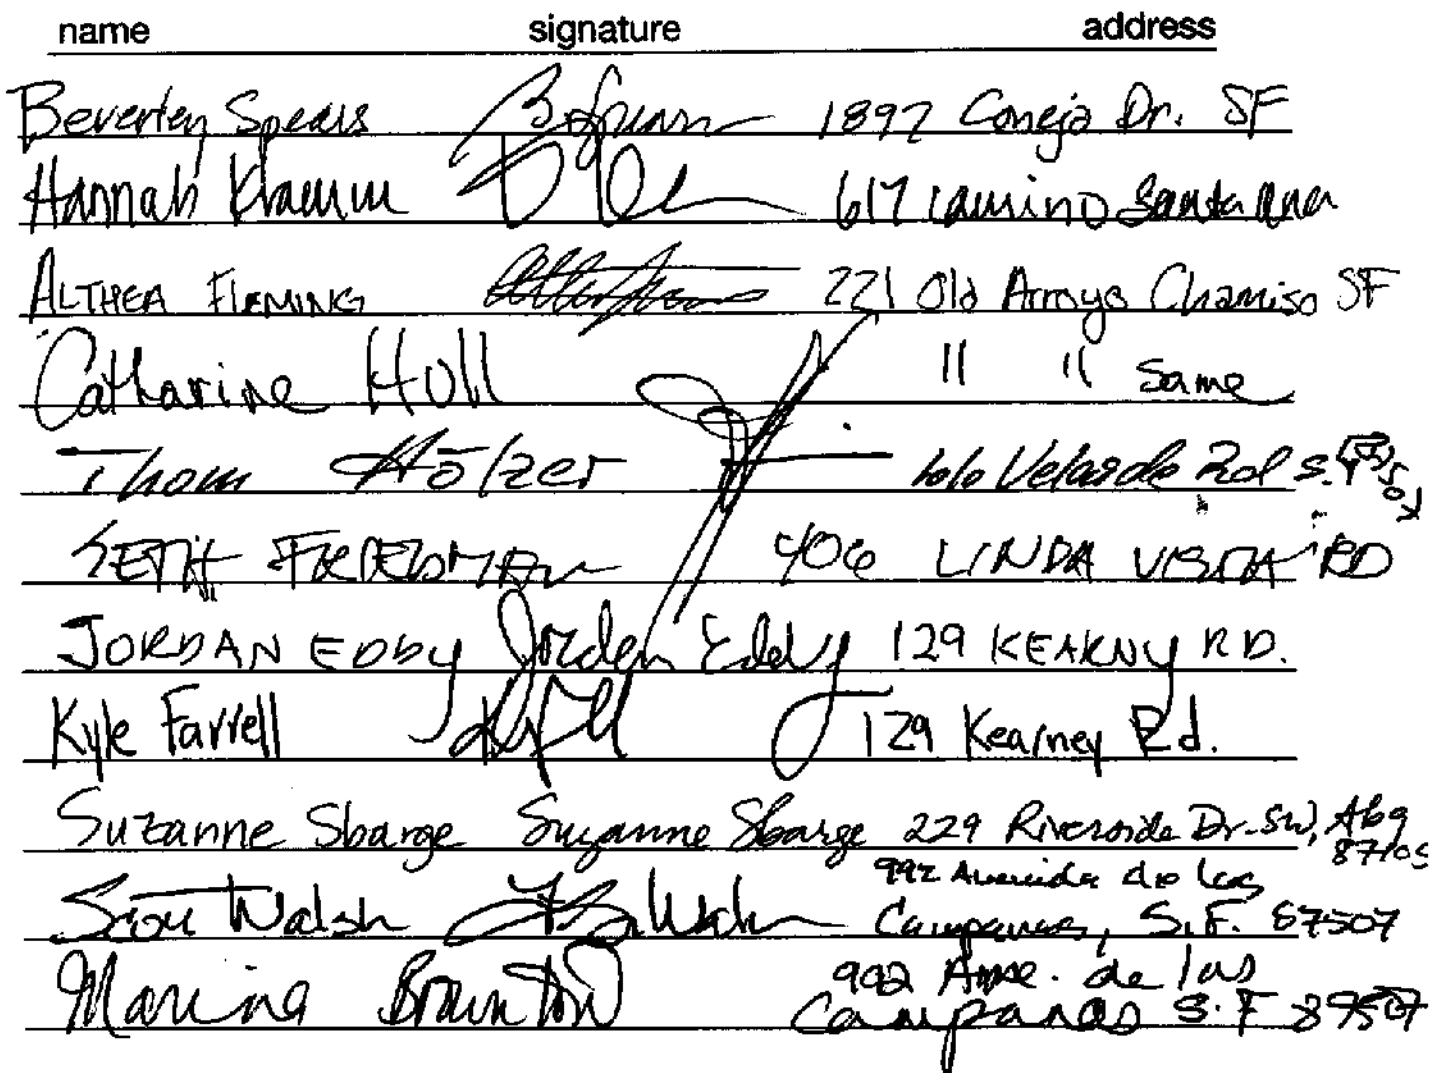 name signature address
Beverley Spears 1892 Conejo Dr. SF
Hannah 617 Camino Santa Ana
ALTHEA FLEMING 221 Old Arroyo Chamiso SF
Catharine Hull " " Same
Thom Hölzer Velarde S.F. 87505
SETH FRIEDMAN 406 LINDA VISTA RD
JORDAN EDDY Jordan Eddy 129 KEARNY RD.
Kyle Farrell 129 Kearney Rd.
Suzanne Sbarge Suzanne Sbarge 229 Riverside Dr. SW, Abq
87105
992 Avenida de las
Walsh Campanas, S.F. 87507
992 Ave. de las
Marina Campanas S.F